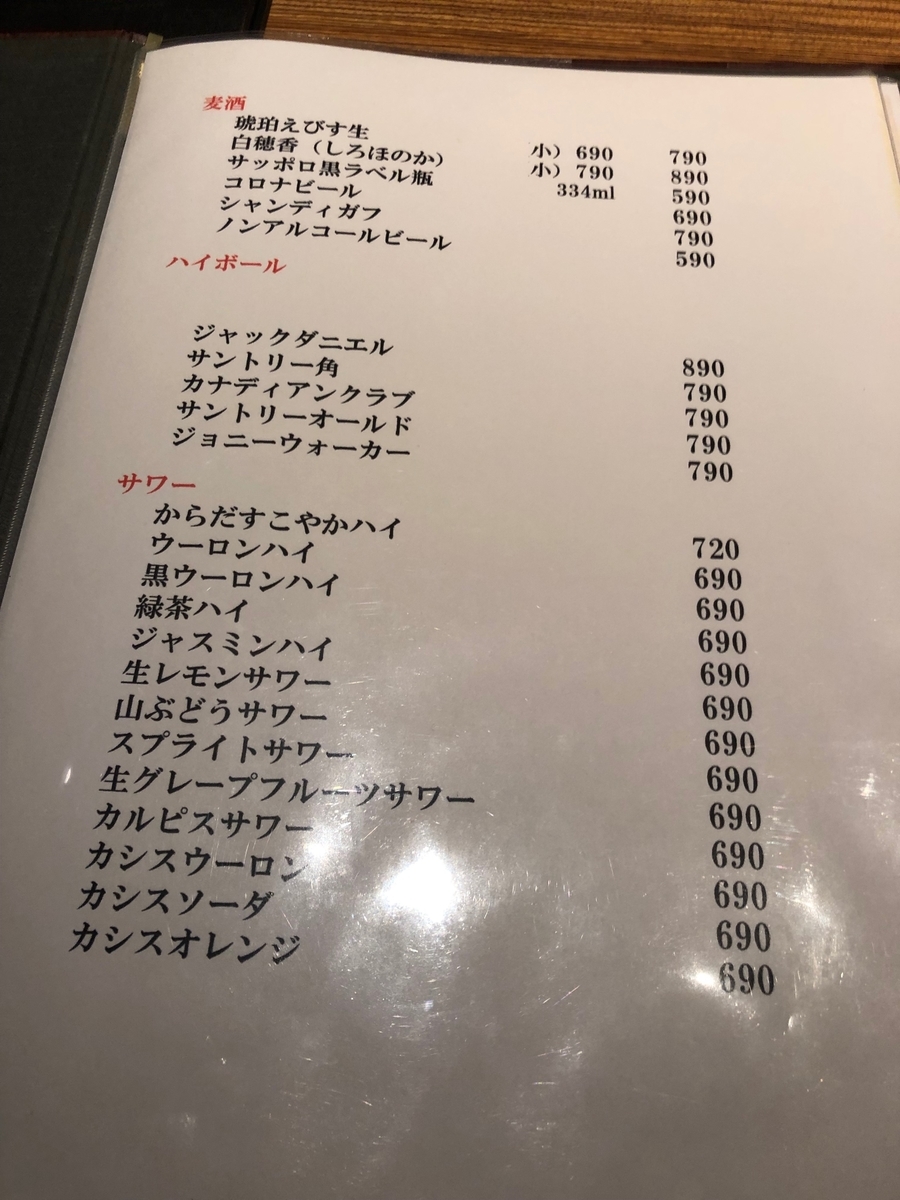 麦酒
琥珀えびす生 小）690 790
白穂香（しろほのか） 小）790 890
サッポロ黒ラベル瓶 334ml 590
コロナビール 690
シャンディガフ 790
ノンアルコールビール 590
ハイボール
ジャックダニエル 890
サントリー角 790
カナディアンクラブ 790
サントリーオールド 790
ジョニーウォーカー 790
サワー
からだすこやかハイ 720
ウーロンハイ 690
黒ウーロンハイ 690
緑茶ハイ 690
ジャスミンハイ 690
生レモンサワー 690
山ぶどうサワー 690
スプライトサワー 690
生グレープフルーツサワー 690
カルピスサワー 690
カシスウーロン 690
カシスソーダ 690
カシスオレンジ 690